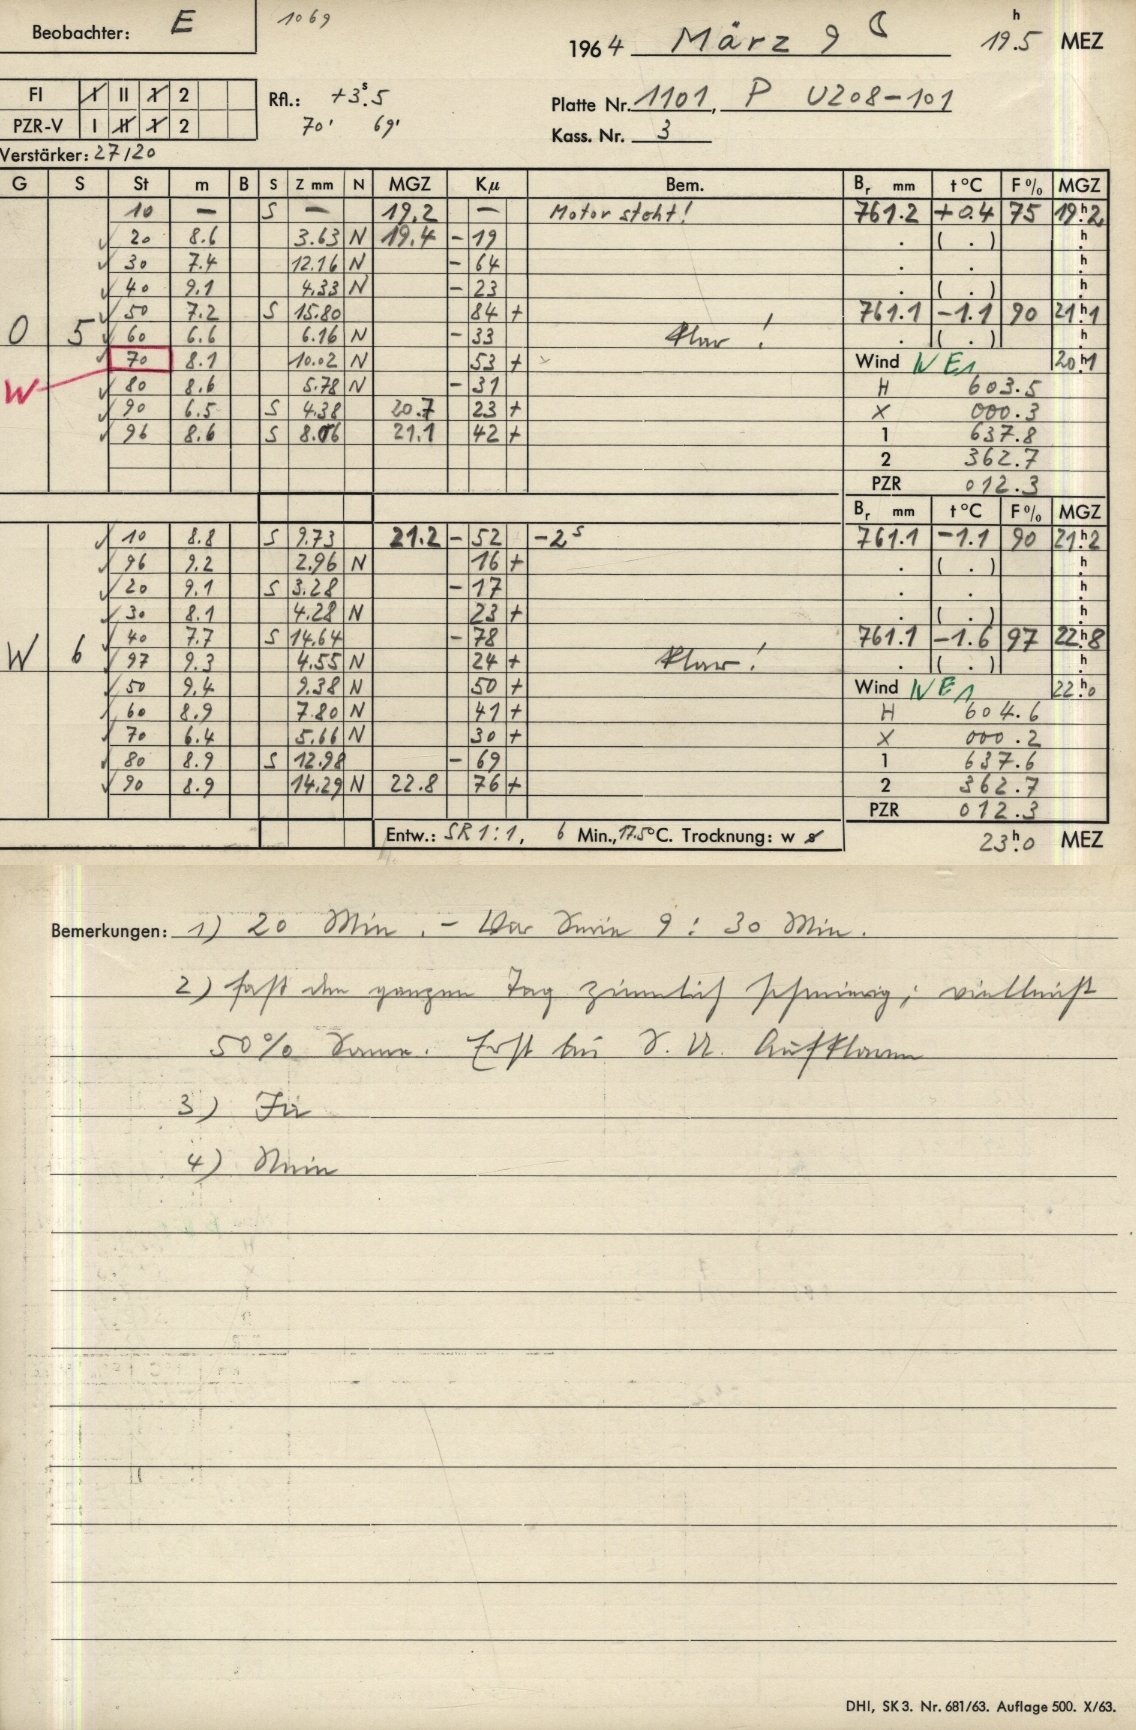 Beobachter: E 1069
1964 März 9 ☾ 19.5 h MEZ
FI I II 1 2
PZR-V I II 1 2
Rfl.: +3.s5
70' 69'
Platte Nr. 1101, P U208-101
Kass. Nr. 3
Verstärker: 27/20
G S St m B S Z mm N MGZ Kμ Bem. Br mm t°C F% MGZ
10 – S – 19.2 – Motor steht! 761.2 +0.4 75 19h2
20 8.6 3.63 N 19.4 -19 . ( . ) h.
30 7.4 12.16 N -64 . . h.
40 9.1 4.33 N -23 . ( . ) h.
50 7.2 S 15.80 84 + 761.1 -1.1 90 21h1
O 5 60 6.6 6.16 N -33 Klar! . ( . ) h.
70 8.1 10.02 N 53 + Wind NE1 20h1
W 80 8.6 5.78 N -31 H 603.5
90 6.5 S 4.38 20.7 23 + X 000.3
96 8.6 S 8.06 21.1 42 + 1 637.8
2 362.7
PZR 012.3
Br mm t°C F% MGZ
10 8.8 S 9.73 21.2 -52 -2s 761.1 -1.1 90 21h2
96 9.2 2.96 N 16 + . ( . ) h.
20 9.1 S 3.28 -17 . . h.
30 8.1 4.28 N 23 + . ( . ) h.
40 7.7 S 14.64 -78 761.1 -1.6 97 22h8
W 6 97 9.3 4.55 N 24 + Klar! . ( . ) h.
50 9.4 9.38 N 50 + Wind NE1 22h0
60 8.9 7.80 N 41 + H 604.6
70 6.4 5.66 N 30 + X 000.2
80 8.9 S 12.98 -69 1 637.6
90 8.9 14.29 N 22.8 76 + 2 362.7
PZR 012.3
Entw.: SR 1:1, 6 Min., 17.5°C. Trocknung: w s 23h0 MEZ
Bemerkungen: 1) 20 Min. – Vor Serie 9 : 30 Min.
2) fast den ganzen Tag ziemlich schmierig; vielleicht
50% Sonne. Erst bei S. U. Aufklaren
3) Ja
4) Nein
DHI, SK 3. Nr. 681/63. Auflage 500. X/63.